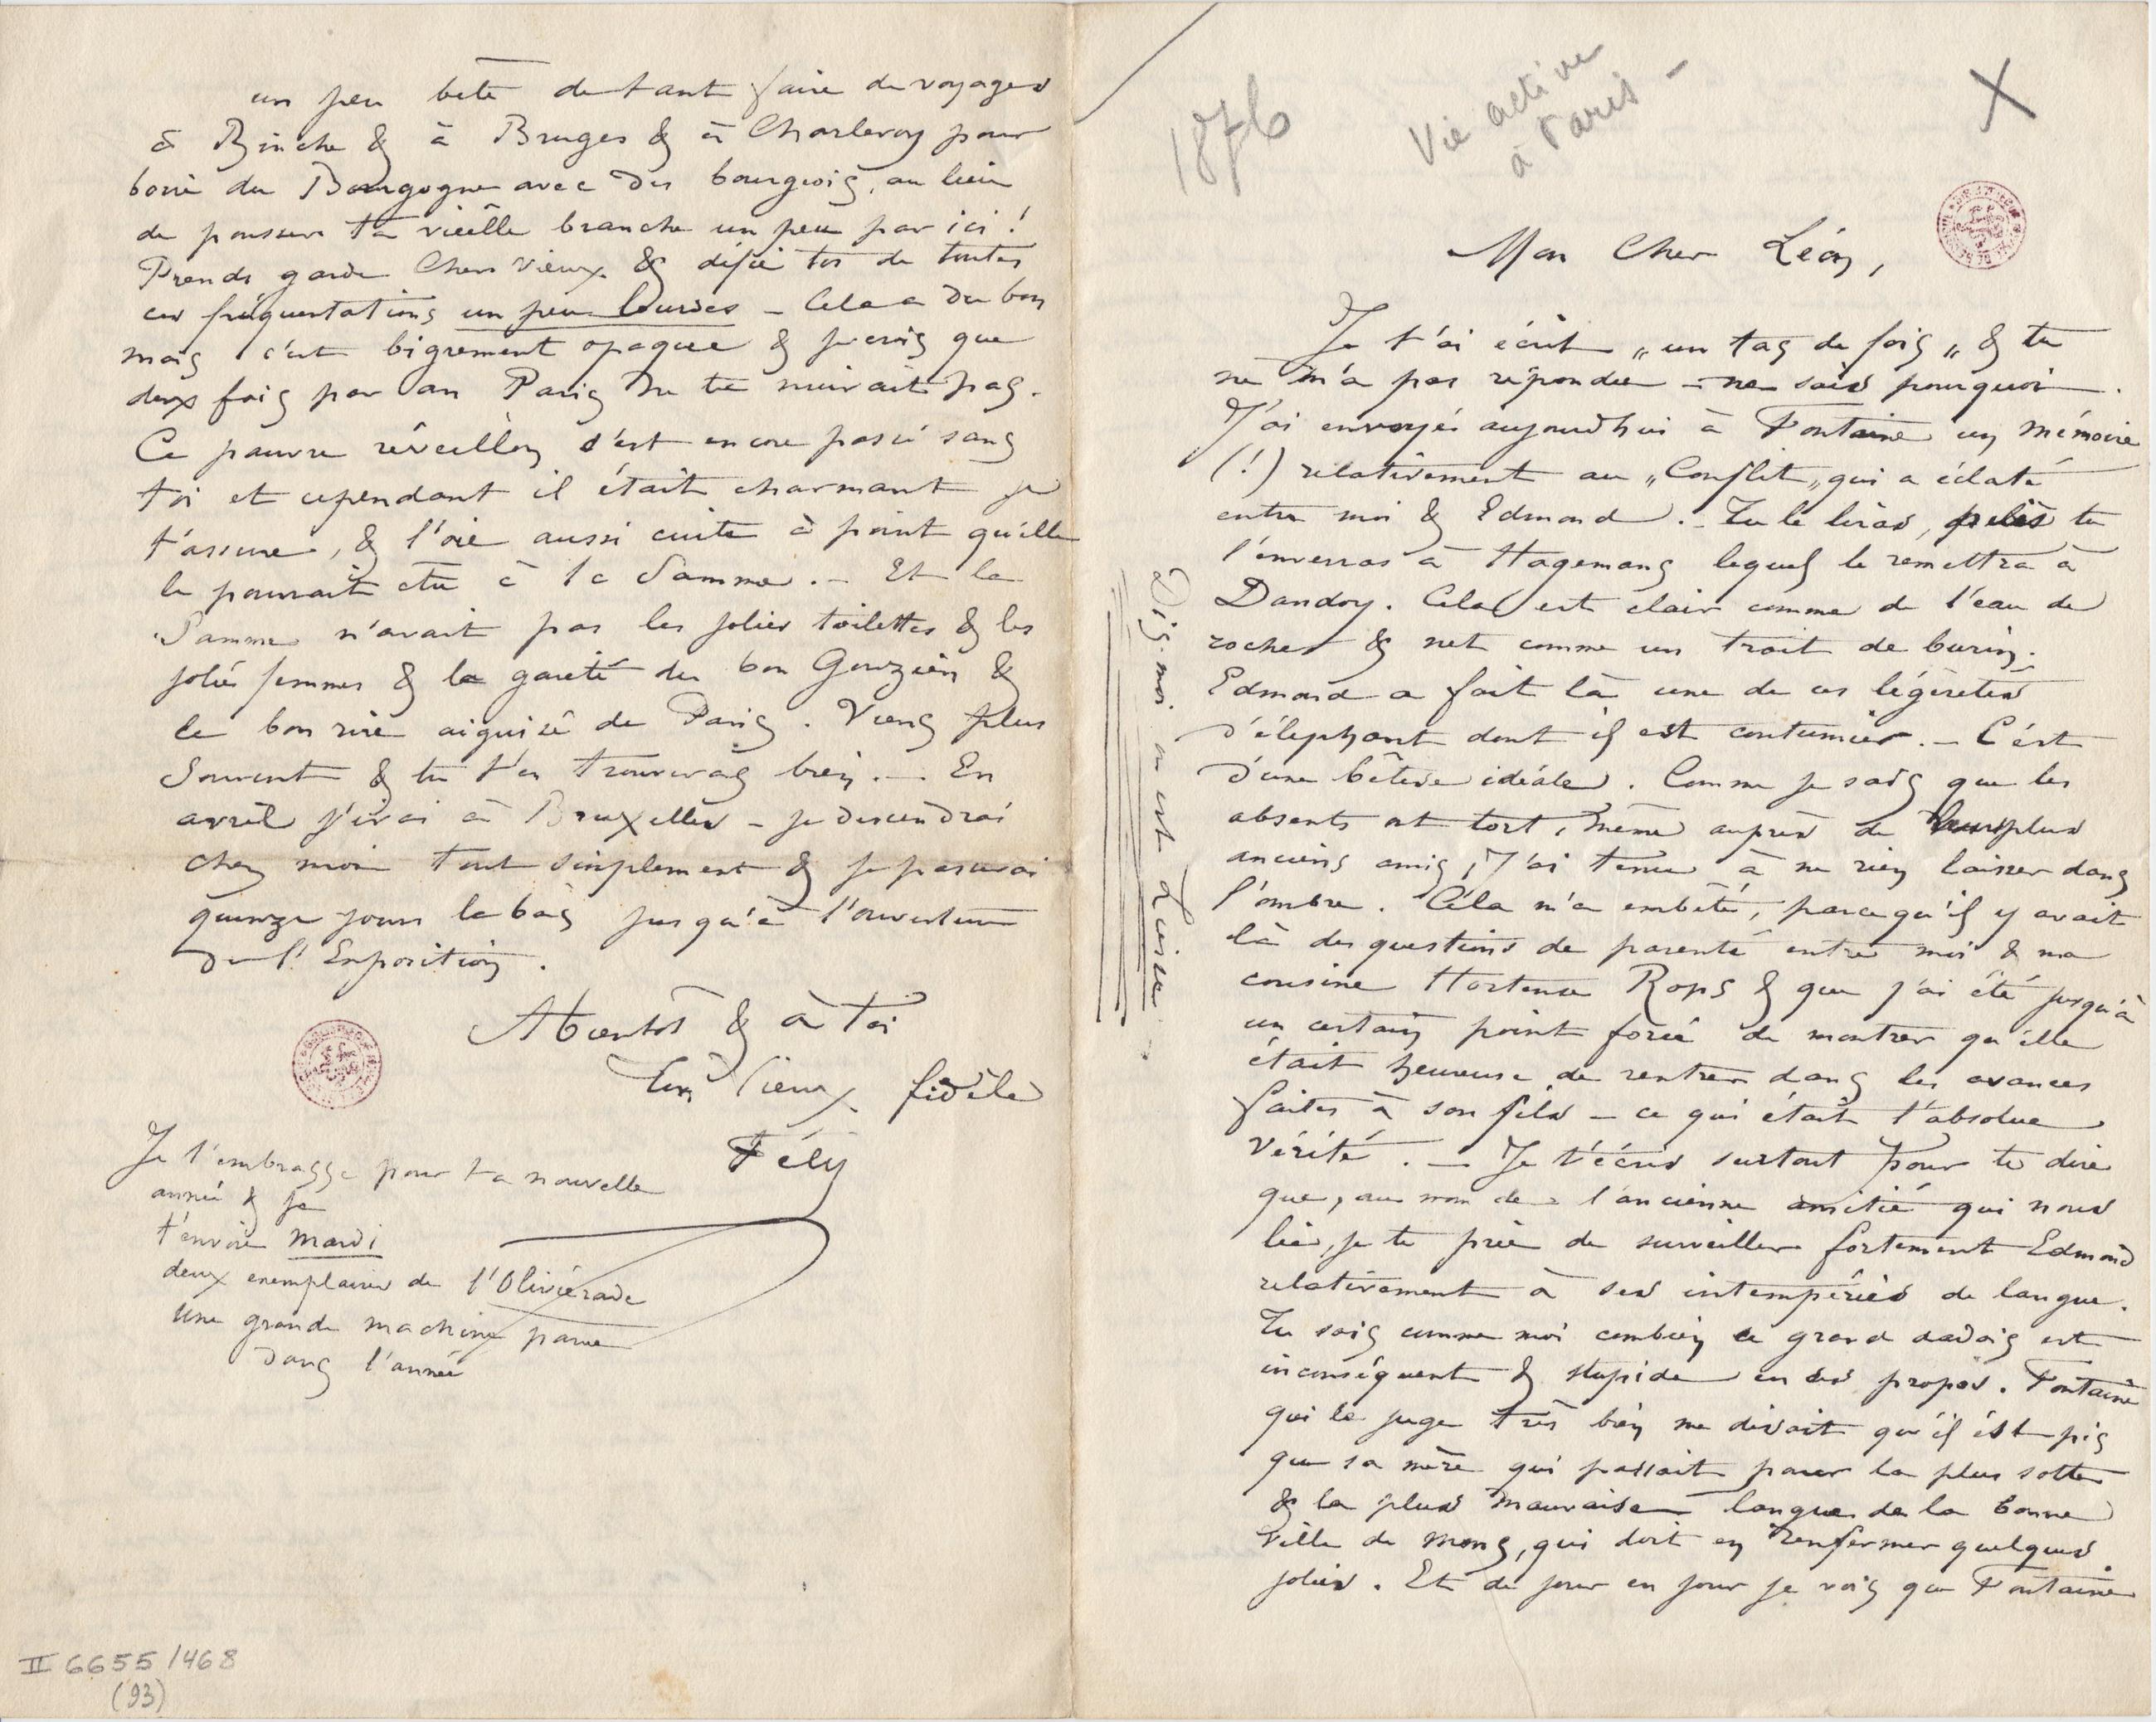 1876
Vie active
à Paris -
X
Mon Cher Léon,
Je t'ai écrit „un tas de fois„ & tu
ne m'a pas répondu - ne sais pourquoi.
J'ai envoyé aujourd'hui à Fontaine un mémoire
(!) relativement au „Conflit„ qui a éclaté
entre moi & Edmond. - Tu le liras, puis tu
l'enverras à Hagemans lequel le remettra à
Dandoy. Cela est clair comme de l'eau de
roche & net comme un trait de burin.
Edmond a fait là une de ces légèretés
d'éléphant dont il est coutumier. - C'est
d'une bêtise idéale. Comme je sais que les
absents ont tort, même auprès de leurs plus
anciens amis, j'ai tenu à ne rien laisser dans
l'ombre. Cela m'a embêté, parce qu'il y avait
là des questions de parenté entre moi & ma
cousine Hortense Rops & que j'ai été jusqu'à
un certain point forcé de montrer qu'elle
était heureuse de rentrer dans les avances
faites à son fils - ce qui était l'absolue
vérité. - Je t'écris surtout pour te dire
que, au nom de l'ancienne amitié qui nous
lie, je te prie de surveiller fortement Edmond
relativement à ses intempéries de langue.
Tu sais comme moi combien ce grand dadais est
inconséquent & stupide en ses propos. Fontaine
qui le juge très bien me disait qu'il est pis
que sa mère qui passait pour la plus sotte
& la plus mauvaise langue de la bonne
ville de Mons, qui doit en renfermer quelques
jolies. Et de jour en jour je vois que Fontaine
Dis-moi où est Luisier
un peu bête de tant faire de voyages
à Binche & à Bruges & à Charleroy pour
boire du Bourgogne avec des bourgeois, au lieu
de pousser ta vieille branche un peu par ici!
Prends garde Cher Vieux & défie toi de toutes
ces fréquentations un peu lourdes - Cela a du bon
mais c'est bigrement opaque & je crois que
deux fois par an Paris ne te nuirait pas.
Ce pauvre réveillon s'est encore passé sans
toi et cependant il était charmant je
t'assure, & l'oie aussi cuite à point qu'elle
le pourrait être à la Samme. - Et la
Samme n'avait pas les jolies toilettes & les
jolies femmes & la gaieté du bon Gouzien &
le bon rire aiguisé de Paris. Viens plus
souvent & tu t'en trouveras bien. - En
avril j'irai à Bruxelles - je descendrai
chez moi tout simplement & je passerai
quinze jours là bas jusqu'à l'ouverture
de l'Exposition.
A bientôt & à toi
Ton Vieux fidèle
Fély
Je t'embrasse pour ta nouvelle
année & je
t'envoie mardi
deux exemplaires de l'Oliviérade
une grande machine parue
dans l'année
II 6655/468
(93)